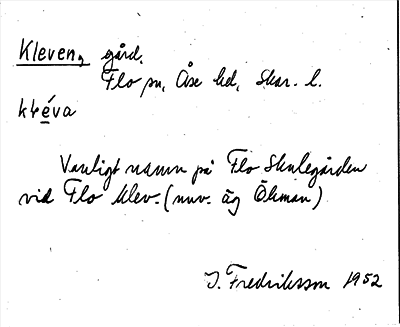 Kleven, gård.
Flo sn, Åse hd, Skar. l.
kléva
Vanligt namn på Flo Skulegården
vid Flo klev. (nuv. äg Öhman)
I. Fredriksson 1952